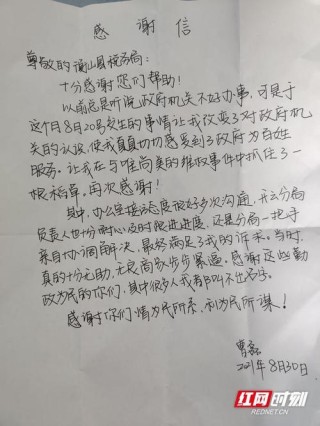 感谢信
尊敬的衡山县税务局:
十分感谢您们帮助!
以前总是听说政府机关不好办事,可是于
这个月8月20号发生的事情让我改变了对政府机
关的认识,使我真真切切感受到了政府为百姓
服务。让我在与唯尚美的维权事件中抓住了一
根稻草。再次感谢!
其中,办公室接待态度很好多次沟通,开云分局
负责人也十分耐心及时跟进进度,还是分局一把手
亲自协调解决,最终满足了我的诉求。当时,
真的十分无助,无良商家步步紧逼。感谢这些勤
政为民的你们,其中很多人我都叫不出名字。
感谢你们情为民所系,利为民所谋!
曹磊
2021年8月30日
红网时刻
REDNET.CN